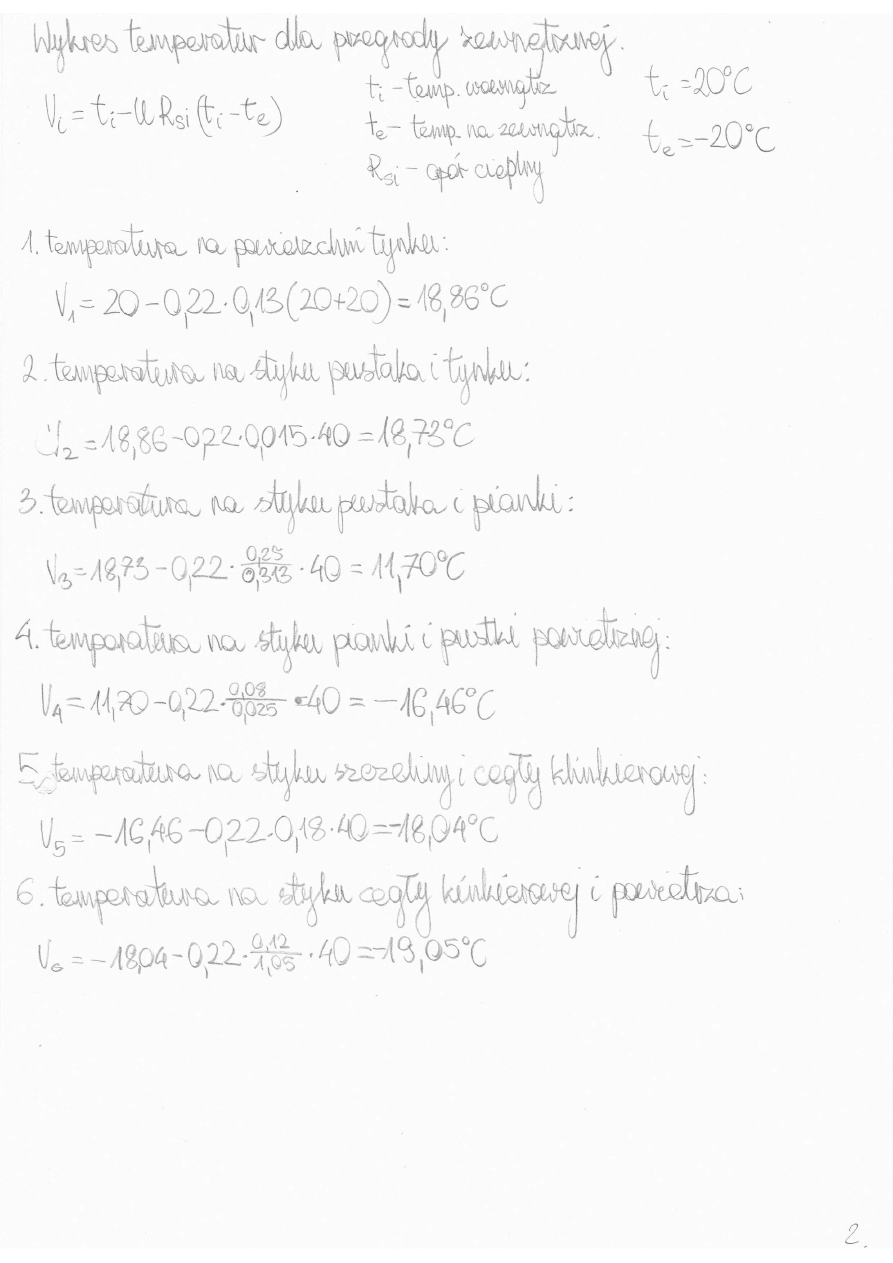 Wykres temperatur dla przegrody zewnętrznej.
Vi = ti - U Rsi (ti - te)
ti - temp. wewnątrz
te - temp. na zewnątrz.
Rsi - opór cieplny
ti = 20°C
te = -20°C
1. temperatura na powierzchni tynku:
V1 = 20 - 0,22 · 0,13 (20+20) = 18,86°C
2. temperatura na styku pustaka i tynku:
V2 = 18,86 - 0,22 · 0,015 · 40 = 18,73°C
3. temperatura na styku pustaka i pianki:
V3 = 18,73 - 0,22 · 0,25/0,313 · 40 = 11,70°C
4. temperatura na styku pianki i pustki powietrznej:
V4 = 11,70 - 0,22 · 0,08/0,025 · 40 = -16,46°C
5. temperatura na styku szczeliny i cegły klinkierowej:
V5 = -16,46 - 0,22 · 0,18 · 40 = -18,04°C
6. temperatura na styku cegły kinkierowej i powietrza:
V6 = -18,04 - 0,22 · 0,12/1,05 · 40 = -19,05°C
2.